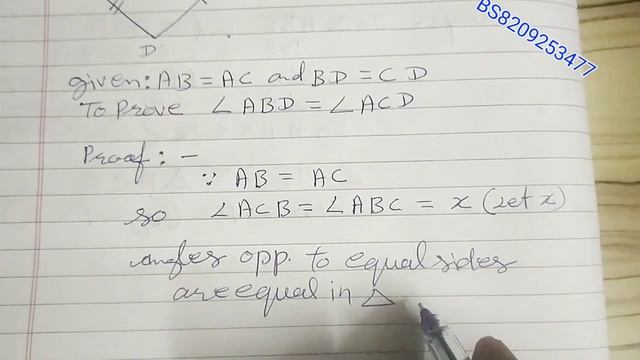 BS8209253477
D
given: AB = AC and BD = CD
To Prove ∠ABD = ∠ACD
Proof: –
∵ AB = AC
so ∠ACB = ∠ABC = x (let x)
angles opp. to equal sides
are equal in △